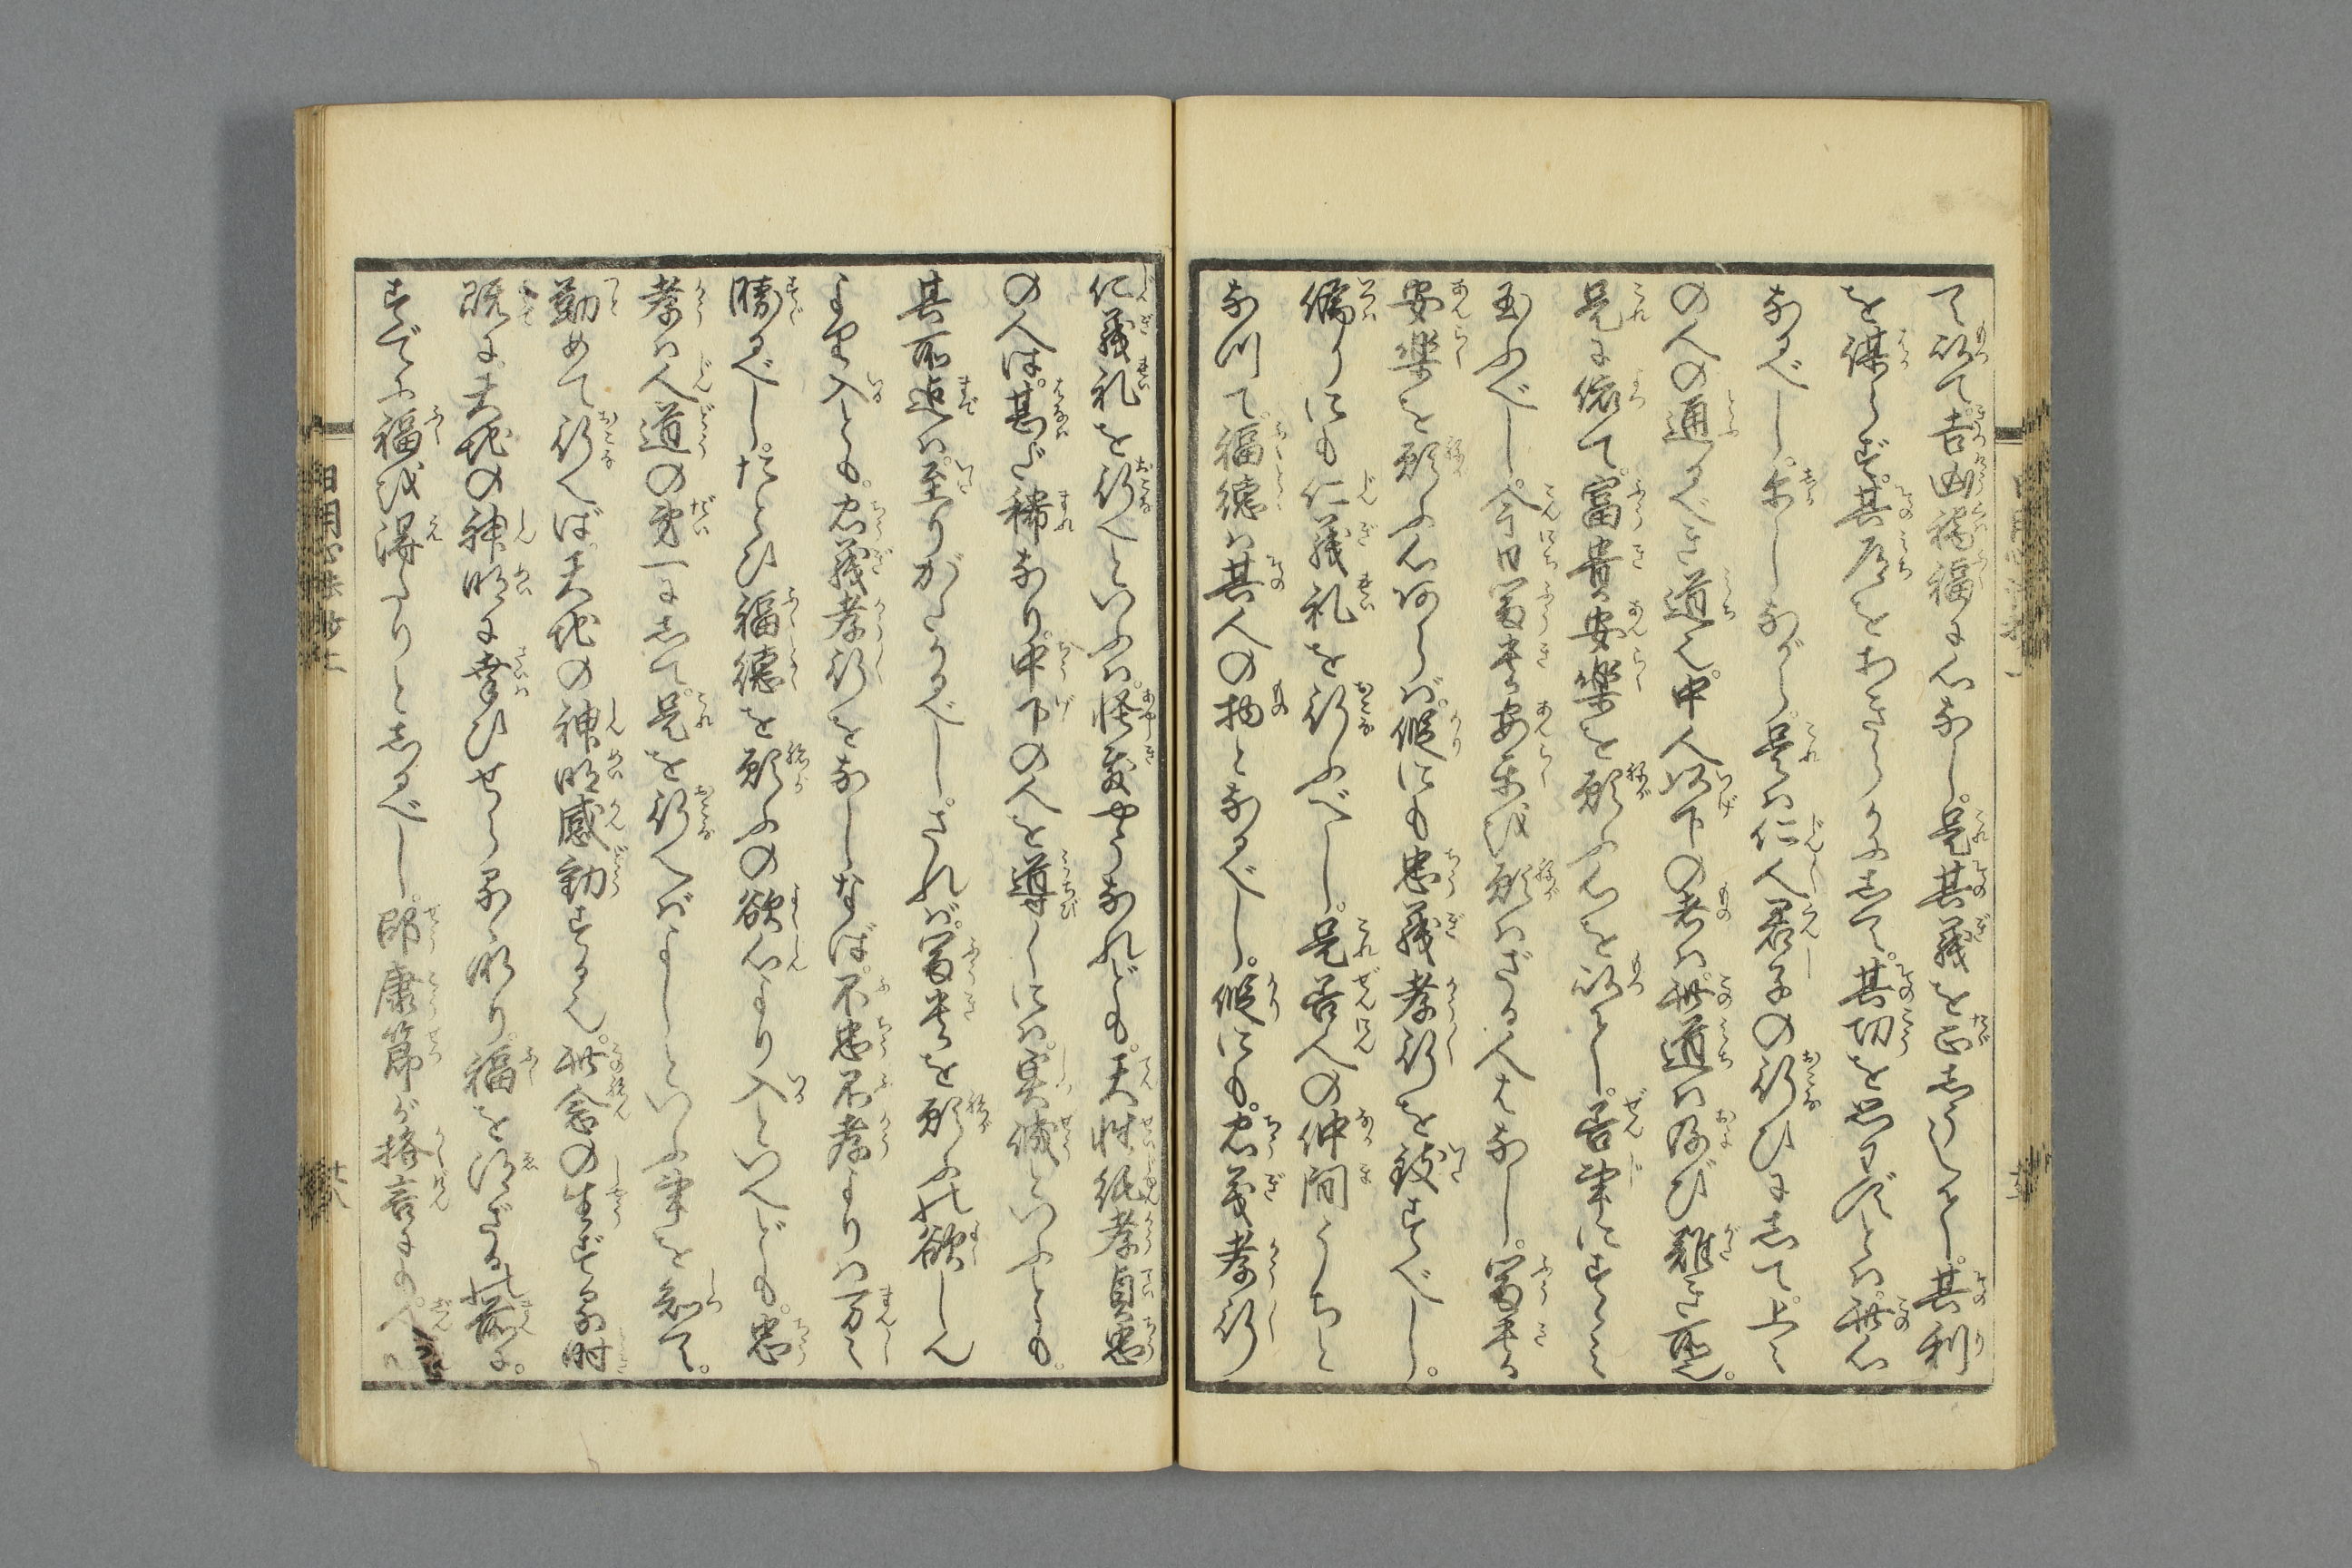 て以て吉凶禍福に心なし。是其義を正しうして。其利
を謀らず。其道をあきらかにして。其功を思はずとは。此心
なるべし。尓しながら。是は仁人君子の行ひにして。上々
の人の通るべき道也。中人以下の者は。此道は及び難き所也。
是に依て。富貴安楽を願ふ心を以て。善事にすゝみ
玉ふべし。今日富貴安楽を願はざる人はなし。富貴
安楽を願ふ心あらば。假にも忠義孝行を致すべし。
偽りにも仁義礼を行ふべし。是善人の仲間うちと
なつて。福徳は其人の物となるべし。假にも。忠義孝行
仁義礼を行へといふは。怪敷やうなれども。天性純孝貞忠
の人は。甚だ稀なり。中下の人を導くには。実誠といふとも。
其所迄は。至りがたかるべし。されば。富貴を願ふ欲しん
より入とも。忠義孝行をなしなば。不忠不孝よりは万々
勝るべし。たとひ福徳を願ふの欲心より入といへども。忠
孝は人道の第一にして。是を行へばよしといふ事を知て。
勤めて行へば。天地の神明感動する也。此念の生ずる時
既に。天地の神明に幸ひせらるゝ所り。福を得ざる前に。
すでに福を得たりとしるべし。邵康節が格言に